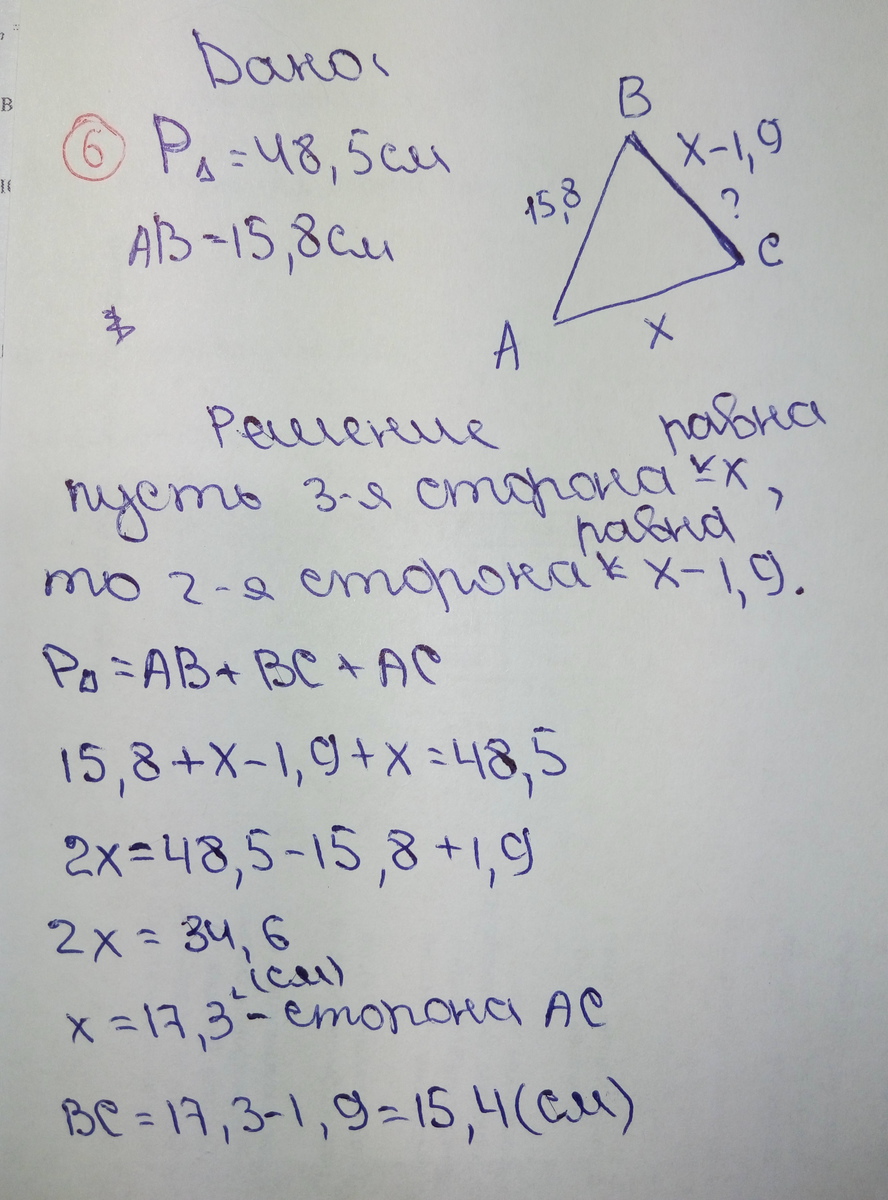 Дано:
6 P△ = 48,5 см
AB = 15,8 см
B
x-1,9
15,8
?
C
A
x
Решение
пусть 3-я сторона равна x,
то 2-я сторона равна x-1,9.
P△ = AB + BC + AC
15,8 + x - 1,9 + x = 48,5
2x = 48,5 - 15,8 + 1,9
2x = 34,6
x = 17,3 (см) - сторона AC
BC = 17,3 - 1,9 = 15,4 (см)